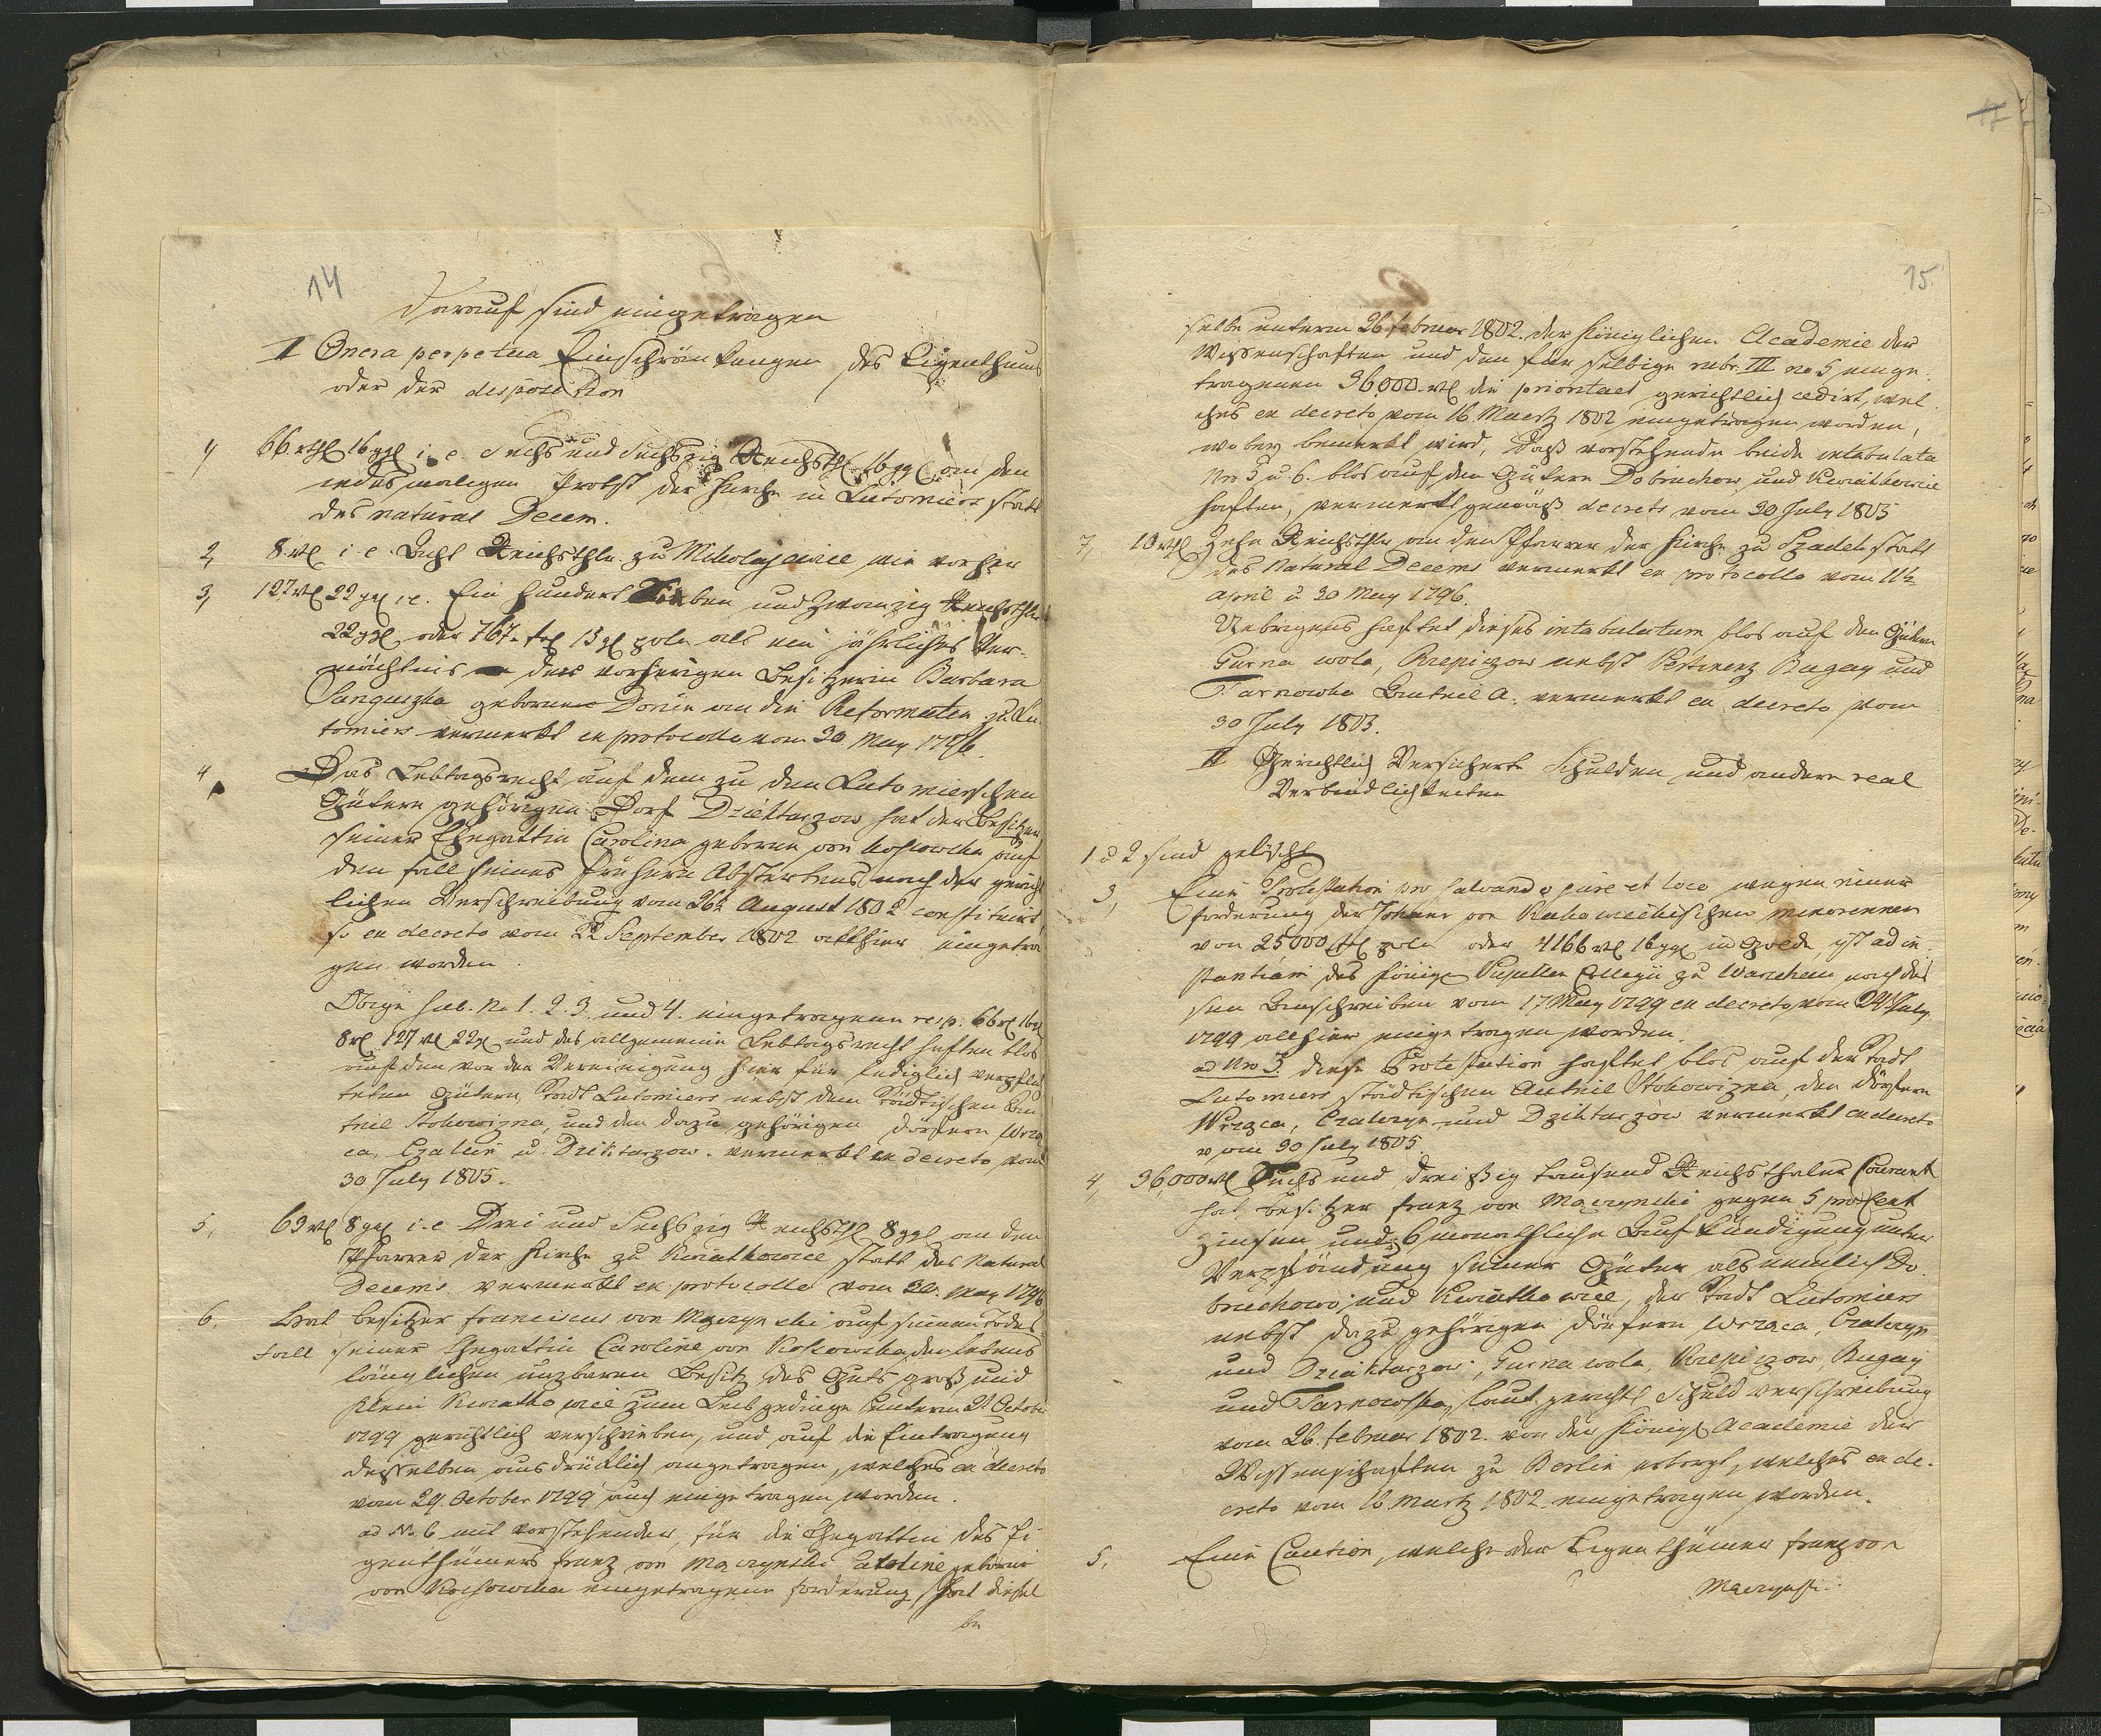 14
Darauf sind eingetragen
II Onera perpetua Einschränkungen des Eigenthums
oder der disposition
1, 66 rtl 16 ggl i. e. Sechs und Sechszig Reichsthl 16 ggl an den
jedesmaligen Probst der Kirche in Lutomiers statt
des natural Decem.
2, 8 rtl i. e. Acht Reichsthlr. zu Mikolajewice wie vorher
3, 127 rtl 22 ggl i.e. Ein hundert Sieben und Zwanzig Reichsthlr
22 ggl oder 767 fl 13 gl poln als ein jährliches Ver-
mächtnis der vorherigen Besitzerin Barbara
Sanguszka geborne Donin an die Reformaten zu Lu
tomiers vermerkt ex protocollo vom 30 May 1796.
4, Das Lebtagsrecht auf dem zu den Lutomierschen
Gütern gehörigen Dorf Dziektarzow hat der Besitzer
seiner Ehegattin Carolina geborne von Kossowska auf
den fall seines frühern Absterbens nach der gericht
lichen Verschreibung vom 26t August 1802 constituirt,
so ex decreto vom 22 September 1802 allhier eingetra
gen worden.
Obige sub. No 1. 2. 3. und 4. eingetragene resp. 66 rl 16 gl
8 rl 127 rl 22 gl und das allgemeine Lebtagsrecht haften blos
auf den vor der Vereinigung hier für lediglich verpflich
teten Gütern Stadt Lutomiers nebst dem Städtischen An
theil Stokowizna, und den dazu gehörigen Dörfern Wrza
ca, Czalein u. Dziektarzow. vermerkt ex decreto vom
30 July 1805.
5, 63 rtl 8 ggl i. e Drei und Sechszig Reichsthl 8 ggl an den
Pfarrer der Kirche zu Kwiatkowice statt des Natural
Decems. vermerkt ex protocollo vom 30. May 1796
6. Hat Besitzer franciscus von Maczynski auf seinen Todes
fall seiner Ehegattin Caroline von Kossowska den lebens
länglichen nuzbaren Besitz des Guts groß und
klein Kwiatkowice zum Leibgedinge unterm 21 October
1799 gerichtlich verschrieben, und auf die Eintragung
desselben ausdrücklich angetragen, welches ex decreto
vom 29. October 1799 auch eingetragen worden.
ad No. 6 mit vorstehender, für die Ehegattin des Ei
genthümers franz von Maczynski Caroline geborne
von Kossowska eingetragene forderung, hat diesel
be
15.
selbe unterm 26 februar 1802. der Königlichen Academie der
Wissenschaften und den für selbige rubr. III no 5 einge
tragenen 36000 rtl die prioritaet gerichtlich cedirt, wel
ches ex decreto vom 16 Maertz 1802 eingetragen worden,
wobey bemerkt wird, daß vorstehende beide intabulata
Nro 5 u 6. blos auf den Gütern Dobruchow und Kwiatkowice
haften, vermerkt gemäß decrets vom 30 July 1805
7, 10 rtl Zehn Reichsthlr an den Pfarrer der Kirche zu Szadek statt
des Natural Decems vermerkt ex protocollo vom 11t
April u 30 May 1796.
Uebrigens haftet dieses intabulatum blos auf den Gütern
Gurna wola, Krepiczow nebst Pertinenz Bugay und
Tarnowka Antheil A. vermerkt ex decreto vom
30 July 1803.
III Gerichtlich Versicherte Schulden und andere real
Verbindlichkeiten
1 u 2 sind gelöscht
3, Eine Protestation pro salvando jure et loco wegen einer
forderung der Johann von Minorennen
von 25000 fl poln oder 4166 rtl 16 ggl in Golde, ist ad in
stantiam des Königl Pupillen Collegii zu Warschau nach des
sen Anschreiben vom 17 May 1799 ex decreto vom 24 July
1799 allhier eingetragen worden.
ad Nro 3. diese Protestation haftet blos auf der Stadt
Lutomiers städtischen Antheil Stokowizna, den Dörfern
Wrzaca, Czaleryn und Dziektarzow vermerkt ex decreto
vom 30 July 1805.
4, 36,000 rtl Sechs und dreißig tausend Reichsthaler Courant
hat Besitzer franz von Maczynski gegen 5 pro Cent
Zinsen und 6 monathliche Aufkündigung unter
Verpfändung seiner Güter als nemlich Do
bruchow und Kwiatkowice, der Stadt Lutomiers
nebst dazu gehörigen Dörfern Wrzaca, Czaleryn
und Dziektarzow; Gurna wola, Krepiczow, Bugay
und Tarnowka, laut gerichtl Schuldverschreibung
vom 26. februar 1802. von der Königl Academie der
Wissenschaften zu Berlin erborgt, welches ex de-
creto vom 16 Martz 1802 eingetragen worden.
5. Eine Caution, welche der Eigenthümer franz von
Maczynski